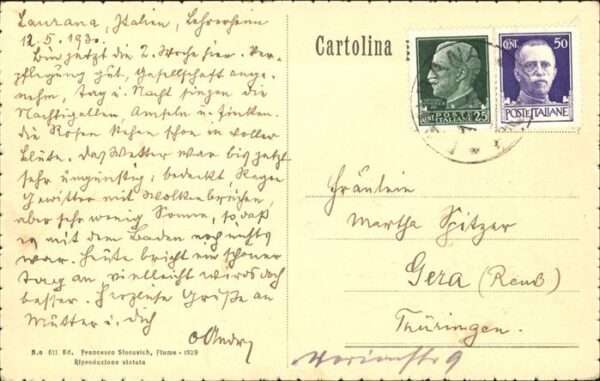 Laurana, Italien, Lehrerheim
12.5.1930.
Bin jetzt die 2. Woche hier. Ver-
pflegung gut, Gesellschaft ange-
nehm, Tag u. Nacht singen die
Nachtigallen, Amseln u. Finken.
Die Rosen stehen schon in voller
Blüte. Das Wetter war bis jetzt
sehr ungünstig; bedeckt, Regen
Gewitter mit Wolkenbrüchen,
aber sehr wenig Sonne, so daß
es mit dem Baden noch nichts
war. Heute bricht ein schöner
Tag an, vielleicht wird's doch
besser. Herzliche Grüße an
Mutter u. dich
N.o 611 Ed. Francesco Slocovich, Fiume - 1929
Riproduzione vietata
Cartolina
CENT. POSTE ITALIANE 25
CENT. 50
POSTE ITALIANE
Fräulein
Martha Spitzer
Gera (Reuß)
Thüringen.